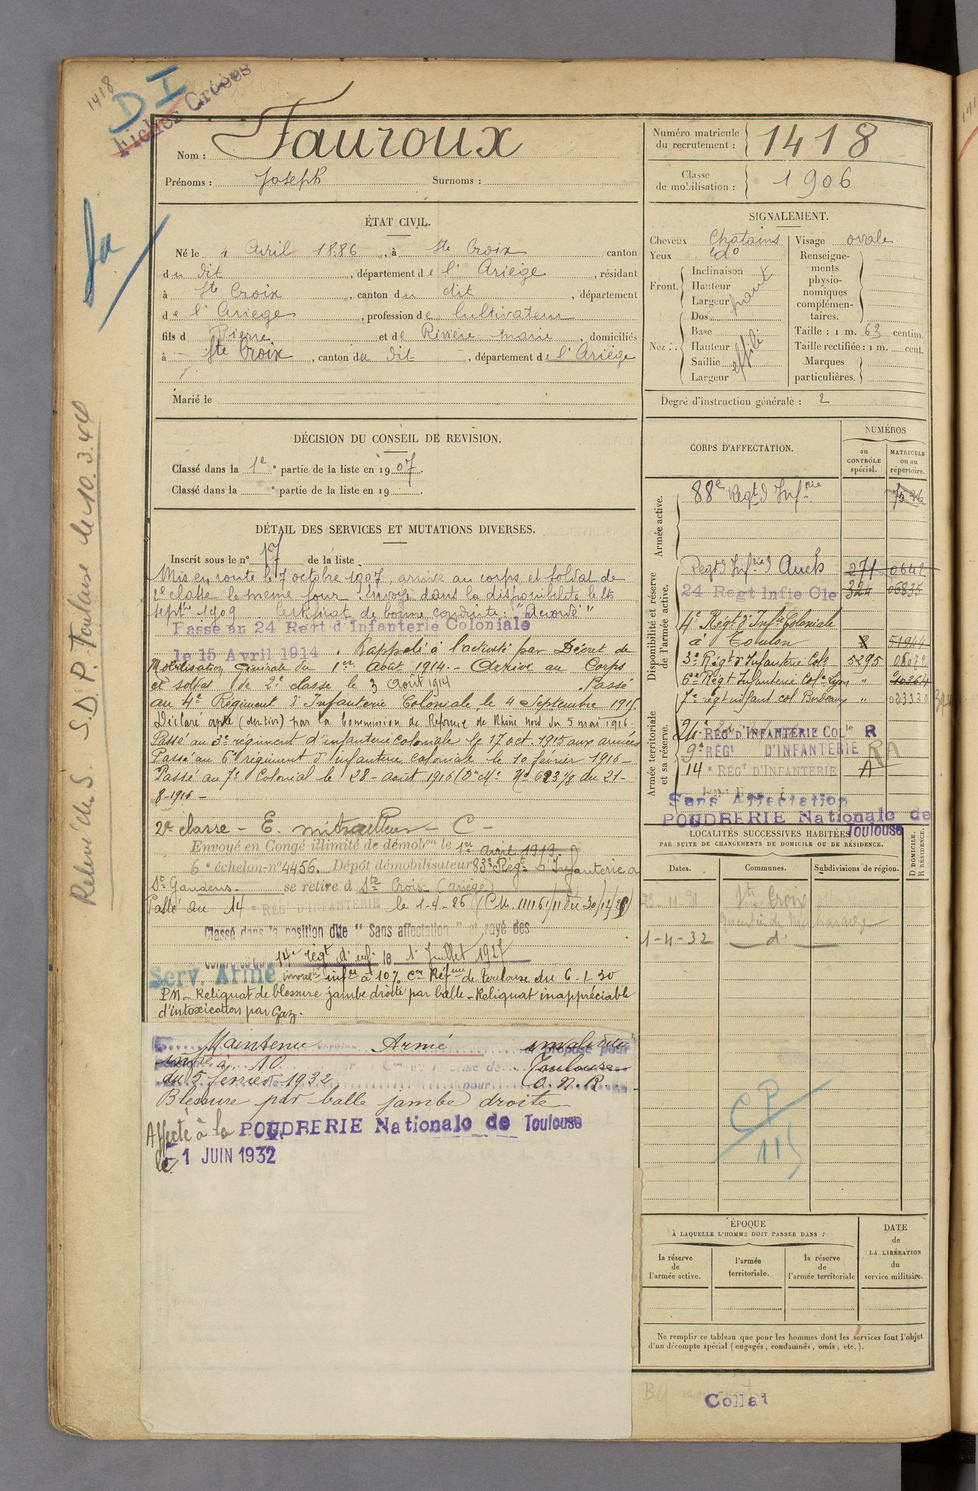 1418
D I
Fichier Croisés
Nom : Fauroux
Prénoms : Joseph Surnoms :
Numéro matricule
du recrutement : 1418
Classe
de mobilisation : 1906
ÉTAT CIVIL.
Né le 4 Avril 1886, à Ste Croix canton
du dit, département de l'Ariège, résidant
à Ste Croix, canton du dit, département
de l'Ariège, profession de Cultivateur
fils d Pierre et de Rivière Marie domiciliés
à Ste Croix, canton du dit, département de l'Ariège
Marié le
SIGNALEMENT.
Cheveux Chatains
Yeux do
Front. Inclinaison
Hauteur
Largeur
haut
Nez : Dos
Base
Hauteur
Saillie
Largeur
effilé
Visage ovale
Renseigne-
ments
physio-
nomiques
complémen-
taires.
Taille : 1 m. 63 centim.
Taille rectifiée : 1 m. cent.
Marques
particulières.
Degré d'instruction générale : 2
DÉCISION DU CONSEIL DE REVISION.
Classé dans la 1e partie de la liste en 1907.
Classé dans la e partie de la liste en 19
DÉTAIL DES SERVICES ET MUTATIONS DIVERSES.
Inscrit sous le n° 17 de la liste
Mis en route le 7 octobre 1907, arrivé au corps et soldat de
2e classe le même jour. Envoyé dans la disponibilité le 25
septbre 1909 Certificat de bonne conduite : "Accordé"
Passé au 24 Regt d'Infanterie Coloniale
le 15 Avril 1914. Rappelé à l'activité par Décret de
Mobilisation Générale du 1er Août 1914. - Arrivé au Corps
et soldat de 2e classe le 3 Août 1914 Passé
au 4e Régiment d'Infanterie Coloniale le 4 Septembre 1915.
Déclaré apte par la Commission de Réforme de Rhône Nord du 5 mai 1916.
Passé au 3e régiment d'infanterie coloniale le 17 oct. 1915 aux armées
Passé au 6e régiment d'Infanterie coloniale le 10 février 1916 -
Passé au 7e Colonial le 28 - août 1916 (D.M. No 623/8 du 21-
8-1916 -
2e classe - E. mitrailleur - C -
Envoyé en Congé illimité de démobon le 1er avril 1919
6e échelon n° 4456. Dépôt démobilisateur 83e Régt d'Infanterie à
St Gaudens - se retire à Ste Croix (Ariège)
Passé au 14e RÉGt D'INFANTERIE le 1-4-26
Classé dans la position dite "Sans affectation" et rayé des
14e régt d'inf. le 1er Juillet 1927
Serv. Armé infre à 10% Con Réfme de Toulouse du 6.1.30
P.M. - Reliquat de blessure jambe droite par balle - Reliquat inappréciable
d'intoxication par Gaz.
Maintenu Armé
à 10
Toulouse
du 5 février 1932 pour
Blessure par balle jambe droite
Affecté à la POUDRERIE Nationale de Toulouse
le -1 JUIN 1932
CORPS D'AFFECTATION.
NUMÉROS
au
CONTRÔLE
spécial.
MATRICULE
ou au
répertoire.
Armée active.
88e Régt d'Infrie
Disponibilité et réserve
de l'armée active.
Regt d'Infrie d'Auch 271
24 Regt Infie Cle 324 06835
4e Régt d'Infie Coloniale
à Toulon
3e Régt d'Infanterie Cole 5295
6e Régt Infanterie Cole Lyon "
7e régt infant. col. Bordeaux "
Armée territoriale
et sa réserve.
24e RÉGt D'INFANTERIE Colle R
9e RÉGt D'INFANTERIE RA
14e RÉGt D'INFANTERIE A
Sans Affectation
POUDRERIE Nationale de
Toulouse
LOCALITÉS SUCCESSIVES HABITÉES
PAR SUITE DE CHANGEMENTS DE DOMICILE OU DE RÉSIDENCE.
Dates. Communes. Subdivisions de région. D DOMICILE. R RÉSIDENCE.
Ste Croix
1-4-32 d°
CP
115
ÉPOQUE
À LAQUELLE L'HOMME DOIT PASSER DANS :
la réserve
de
l'armée active.
l'armée
territoriale.
la réserve
de
l'armée territoriale
DATE
de
LA LIBÉRATION
du
service militaire.
Ne remplir ce tableau que pour les hommes dont les services font l'objet
d'un décompte spécial (engagés, condamnés, omis, etc.).
Collat
Relevé des S. S.D.P. Toulouse le 10.3.44